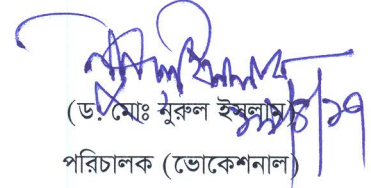 (ড. মোঃ নুরুল ইসলাম)
পরিচালক (ভোকেশনাল)